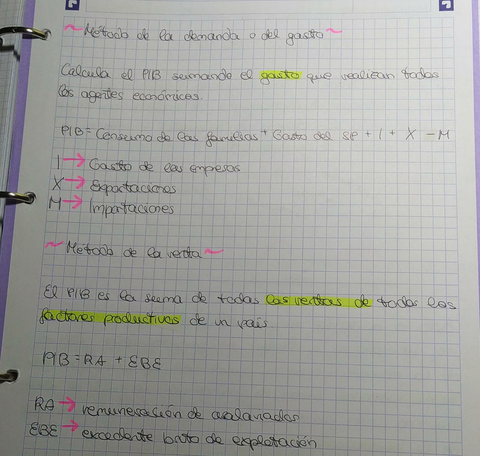 ~Método de la demanda o del gasto~
Calcula el PIB sumando el gasto que realizan todos
los agentes económicos.
PIB = Consumo de las familias + Gasto del SP + I + X - M
I → Gasto de las empresas
X → Exportaciones
M → Importaciones
~Método de la renta~
El PIB es la suma de todas las rentas de todos los
factores productivos de un país
PIB = RA + EBE
RA → remuneración de asalariados
EBE → excedente bruto de explotación